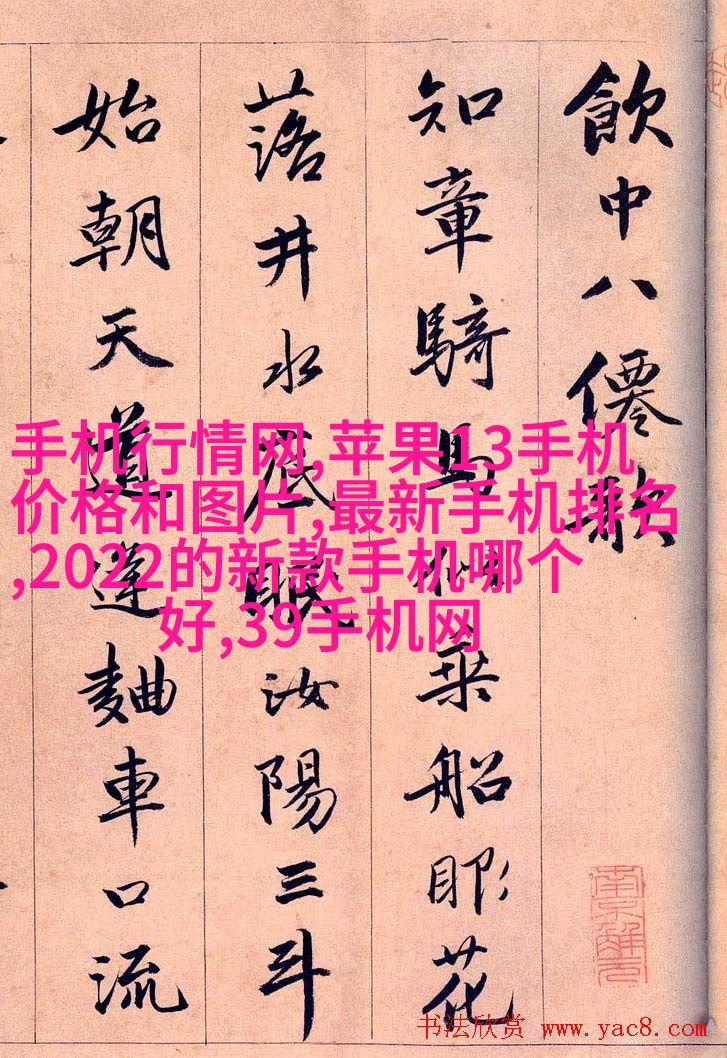 飲中八僊歌
知章騎馬似乘船眼花
落井水底眠汝陽三斗
始朝天道逢麯車口流
南京解元
手机行情网,苹果13手机
价格和图片,最新手机排名
,2022的新款手机哪个
好,39手机网
书法欣赏 www.yac8.com